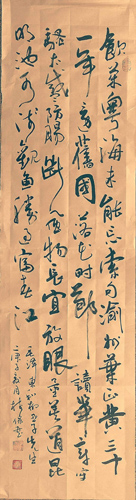 飲茶粤海未能忘索句渝州葉正黄三十
一年還舊國落花时節讀華章牢
騷太盛防腸断風物長宜放眼量莫道昆
明池水浅觀鱼勝過富春江
毛澤東和柳亞子先生